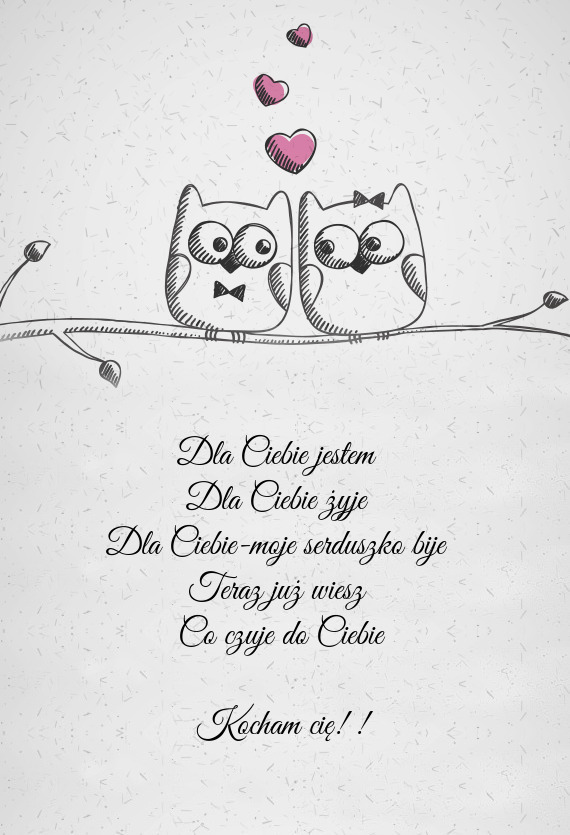 Dla Ciebie jestem
Dla Ciebie żyje
Dla Ciebie-moje serduszko bije
Teraz już wiesz
Co czuje do Ciebie
Kocham cię! !